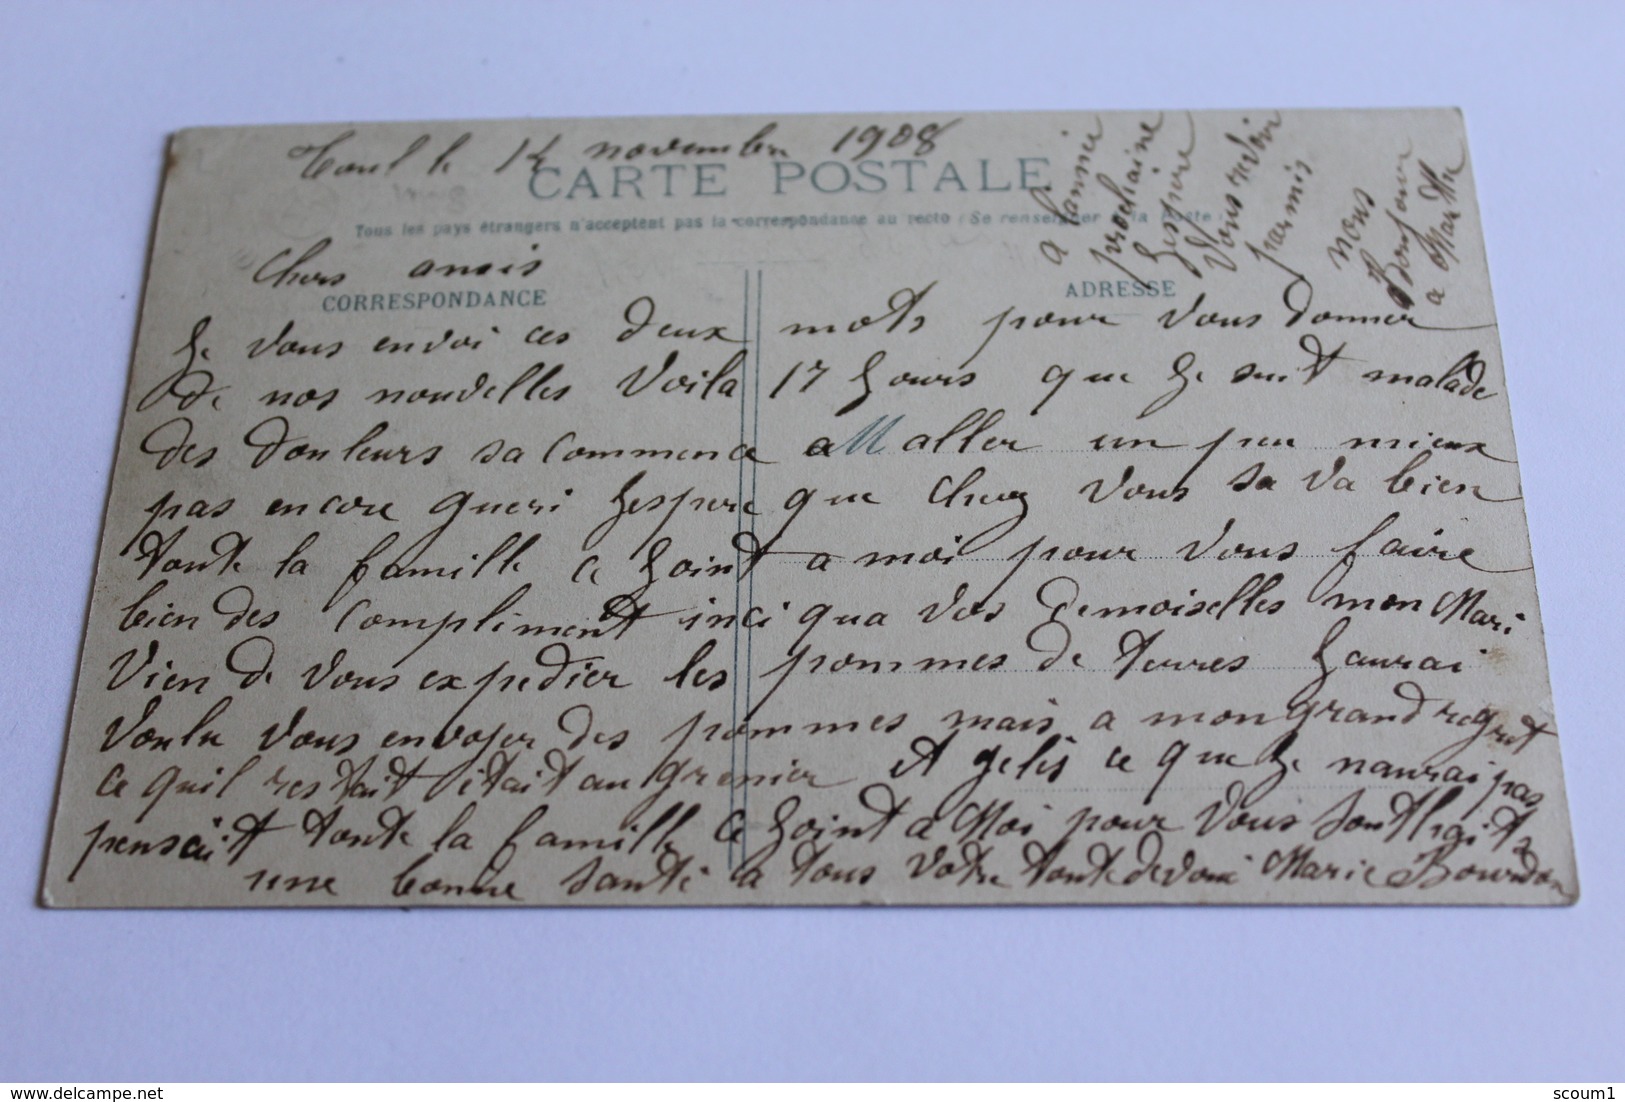 Toul le 14 novembre 1908
CARTE POSTALE
Tous les pays étrangers n'acceptent pas la correspondance au recto (Se renseigner à la Poste)
Chers amis
CORRESPONDANCE
ADRESSE
Je vous envoi ces deux mots pour vous donner
de nos nouvelles voila 17 Jours que Je suit malade
des douleurs sa commence a aller un peu mieux
pas encore gueri Jespere que chez vous sa va bien
toute la famille ce Joint a moi pour vous faire
bien des compliment inci qua vos demoiselles mon Mari
vien de vous expedier les pommes de terres Jaurai
voulu vous envoyer des pommes mais a mon grand regret
ce quil restait était au grenier et gelés ce que Je naurai pas
pensait toute la famille ce Joint a Moi pour vous
une bonne santé a tous votre toute devoué Marie Bourdon
a lannée
prochaine
Jespere
vous revoir
parmis
nous
Bonjour
a Marthe
delcampe.net
scoum1